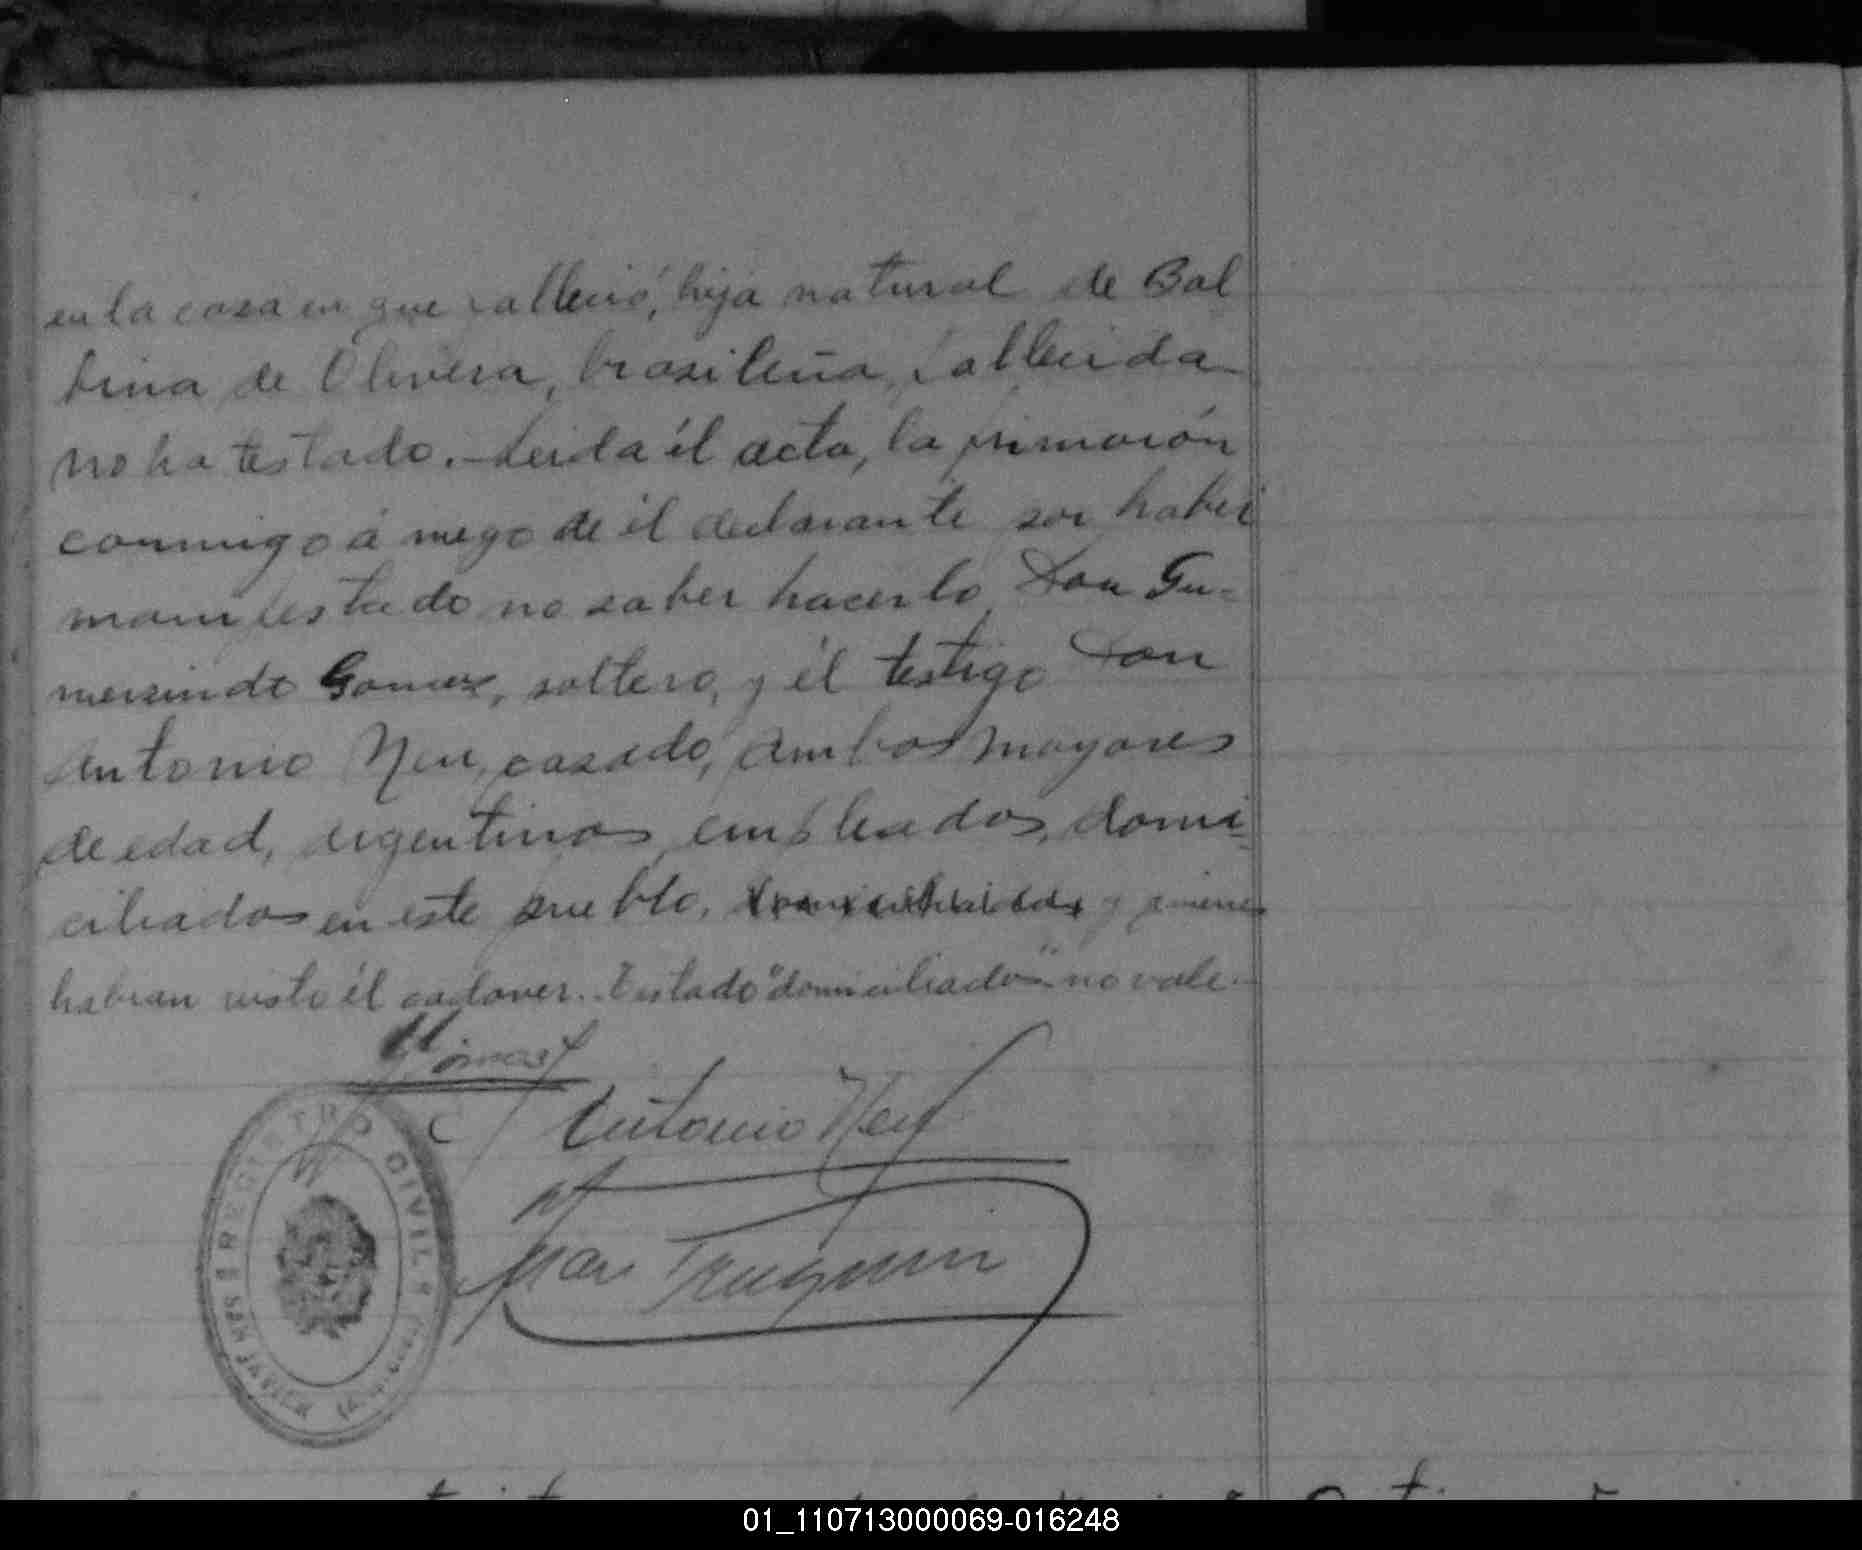 en la casa en que falleció, hija natural de Bal
bina de Olivera, brasileña, fallecida
no ha testado. - Leida él acta, la firmarón
conmigo á ruego de él declarante por haber
manifestado no saber hacerlo, Don Gu-
mersindo Gomez, soltero, y él testigo Don
Antonio Neu, casado, ambos mayores
de edad, argentinos, empleados, domi-
ciliados en este pueblo, domiciliados y quienes
habian visto él cadaver.. Testado "domiciliados" no vale.-
Gomez
Antonio Neu
REGISTRO CIVIL
SAN JAVIER
01_110713000069-016248